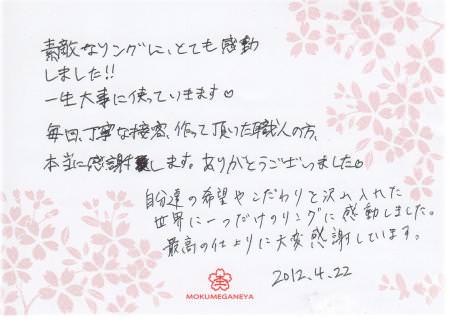 素敵なリングに、とても感動
しました!!
一生大事に使っていきます♡
毎回、丁寧な接客、作って頂いた職人の方、
本当に感謝します。ありがとうございました♡
自分達の希望やこだわりを沢山入れた
世界に一つだけのリングに感動しました。
最高の仕上りに大変感謝しています。
2012.4.22
MOKUMEGANEYA